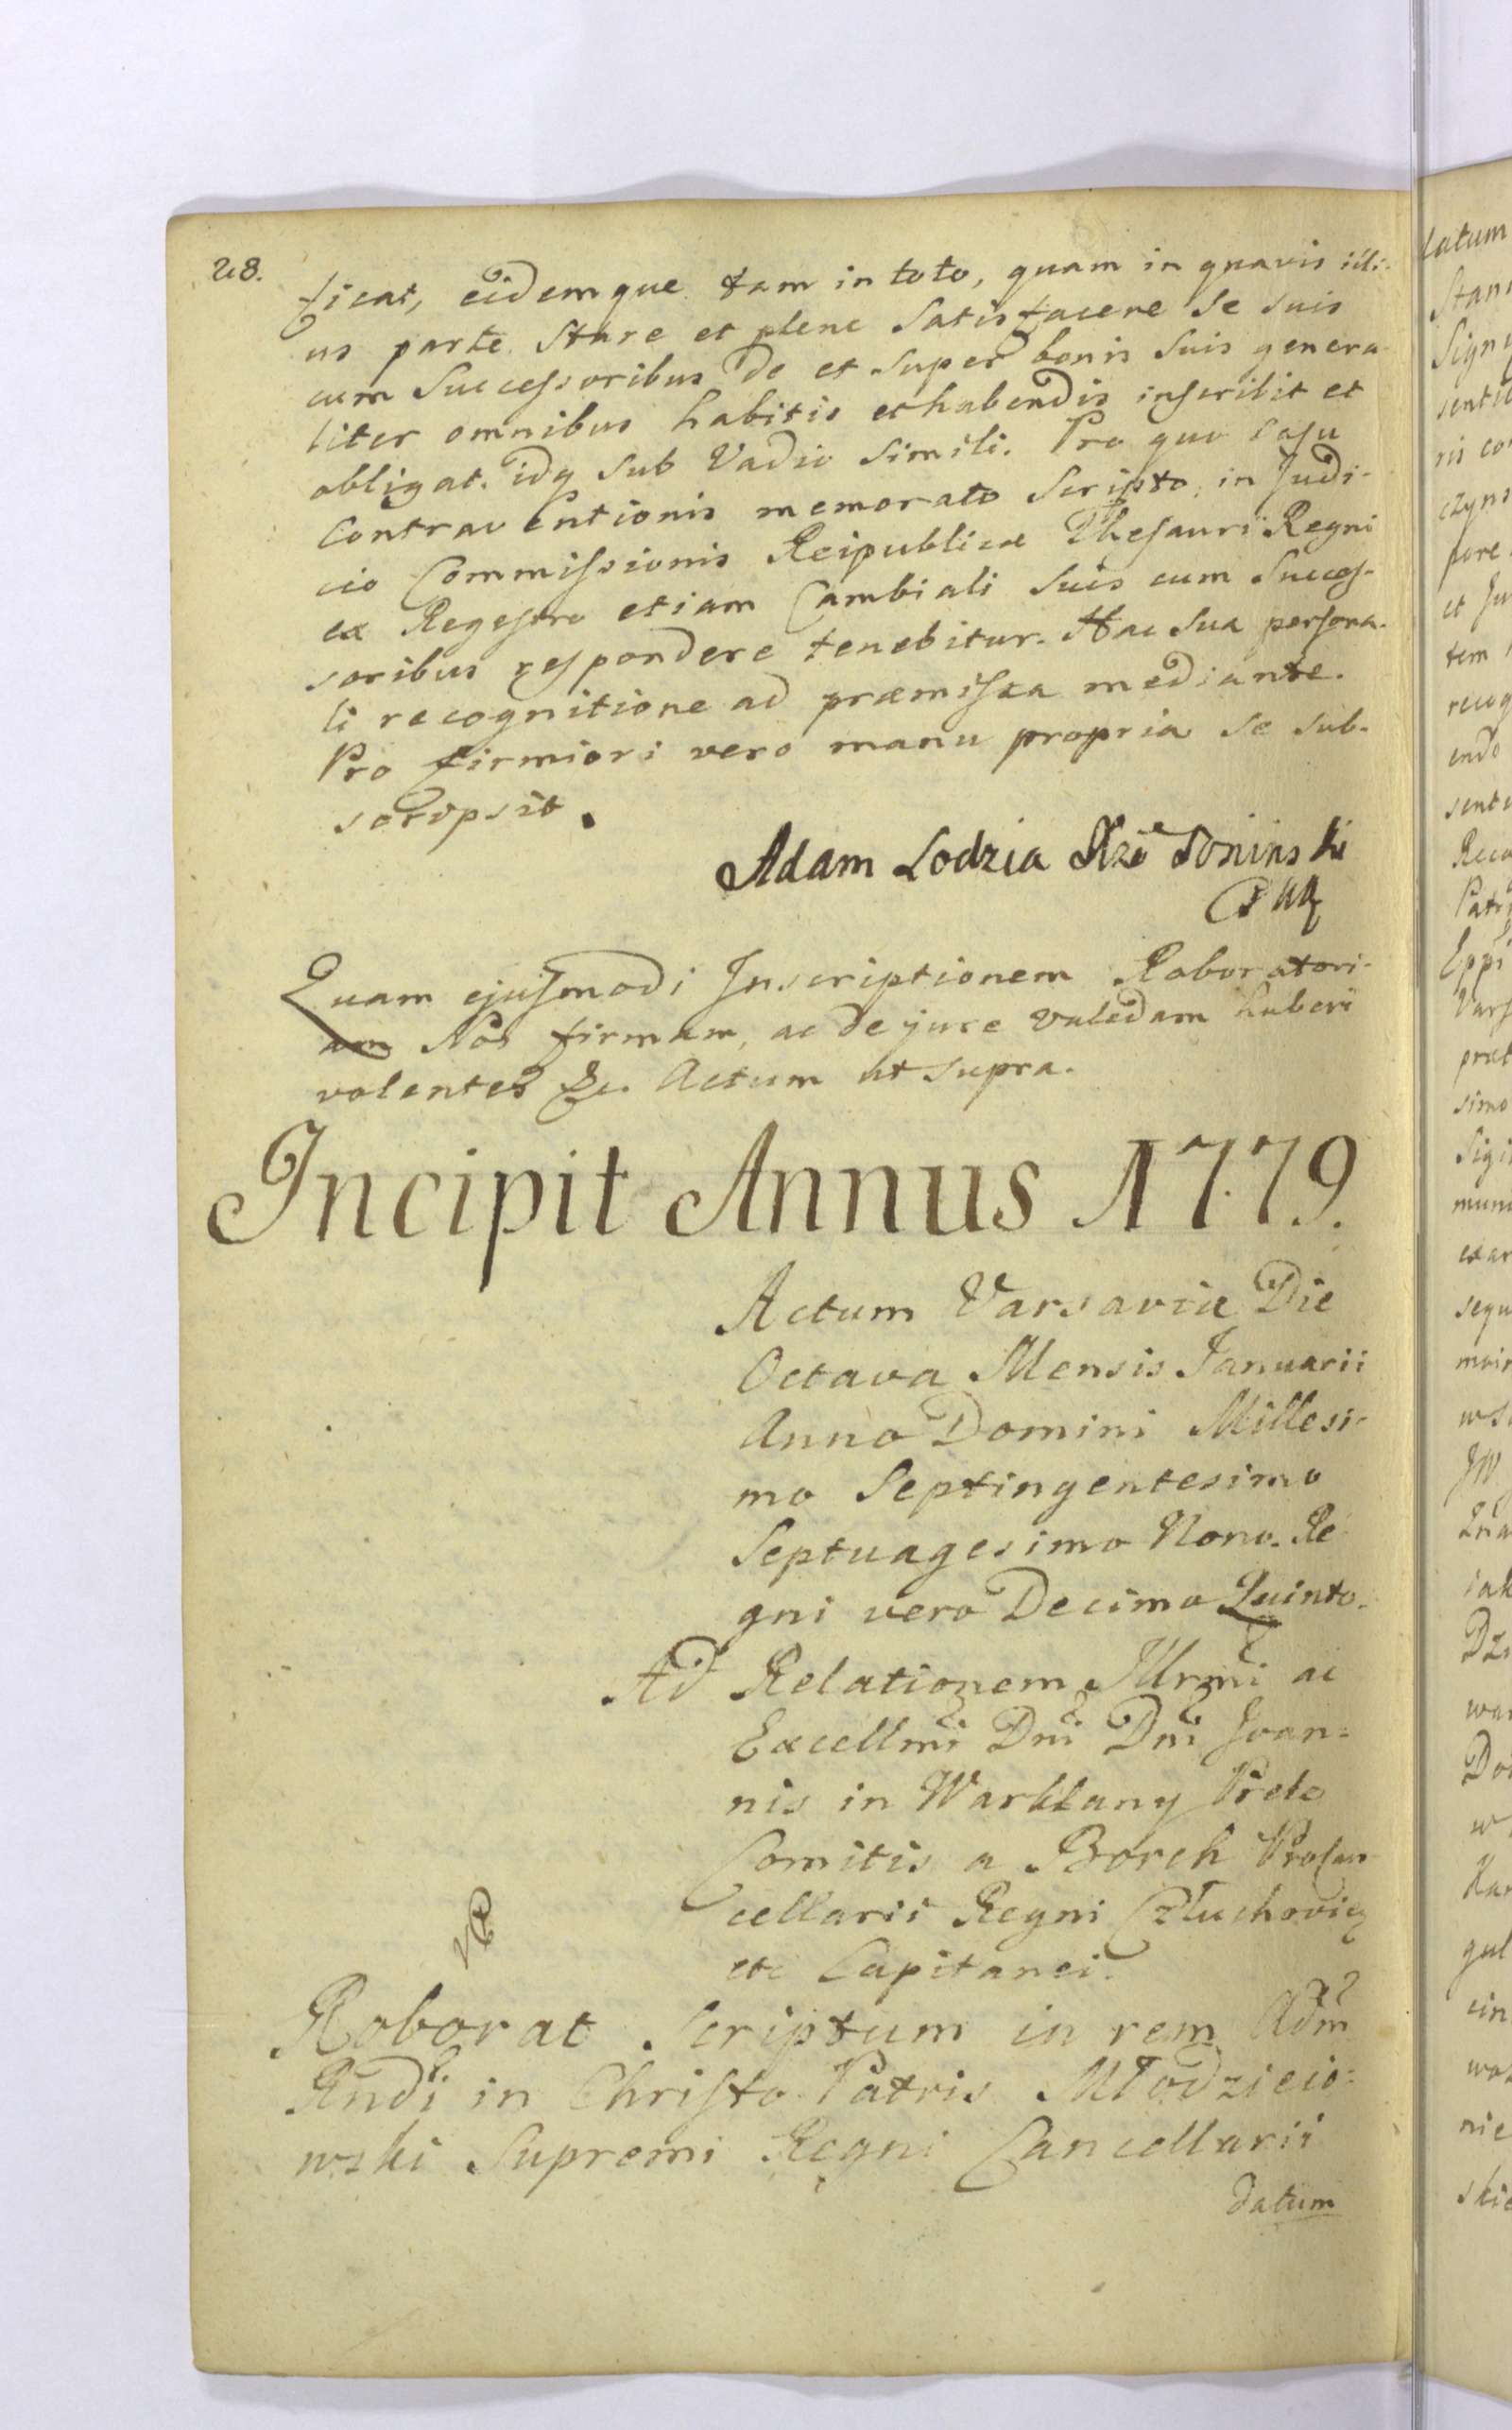 28.
ficat, eidemque tam in toto, quam in quavis illi-
us parte Stare et plene Satisfacere Se Suis
cum Successoribus de et Super bonis Suis genera-
liter omnibus habitis et habendis inscribit et
obligat. idq Sub Vadio Simili. Pro quo Casu
Contraventionis memorato Scripto, in Judi-
cio Commissionis Reipublicæ Thesauri Regni
ex Regestro etiam Cambiali Suis cum Succes-
soribus respondere tenebitur. Hac Sua persona-
li recognitione ad præmissa mediante.
Pro firmiori vero manu propria Se Sub-
scripsit.
Adam Lodzia Xże Poninski
Quam ejusmodi Inscriptionem Roboratori-
am Nos firmam, ac de jure validam haberi
volentes &c. Actum ut Supra.
Incipit Annus 1779.
Actum Varsaviæ Die
Octava Mensis Januarii
Anno Domini Millesi-
mo Septingentesimo
Septuagesimo Nono. Re
gni vero Decimo Quinto.
Ad Relationem Illrmi ac
Excellmi Dni Dni Joan=
nis in Warklany Prele
Comitis a Borch Procan-
cellarii Regni Człuchovien
etc Capitanei.
Roborat Scriptum in rem Adm
Rndi in Christo Patris Młodziejo=
wski Supremi Regni Cancellarii
datum